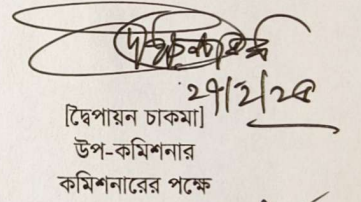 ২৭/২/২৫
[দ্বৈপায়ন চাকমা]
উপ-কমিশনার
কমিশনারের পক্ষে